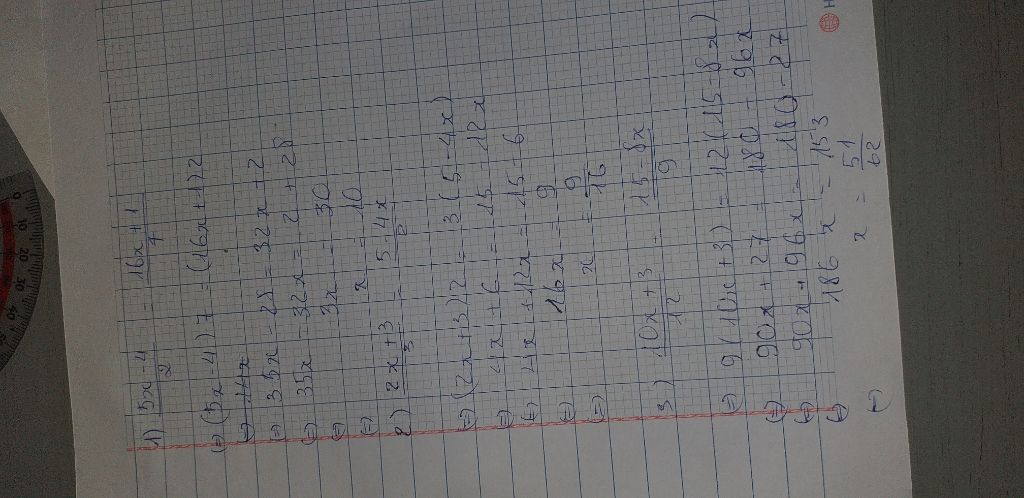 1) (5x-4)/2 = (16x+1)/7
(=) (5x-4)7 = (16x+1)2
(=) 35x - 28 = 32x + 2
(=) 35x - 32x = 2 + 28
(=) 3x = 30
(=) x = 10
2) (2x+3)/3 = (5-4x)/2
(=) (2x+3)2 = 3(5-4x)
(=) 4x + 6 = 15 - 12x
(=) 4x + 12x = 15 - 6
(=) 16x = 9
(=) x = 9/16
3) (10x+3)/12 = (15-8x)/9
(=) 9(10x+3) = 12(15-8x)
(=) 90x + 27 = 180 - 96x
(=) 90x + 96x = 180 - 27
(=) 186x = 153
(=) x = 51/62